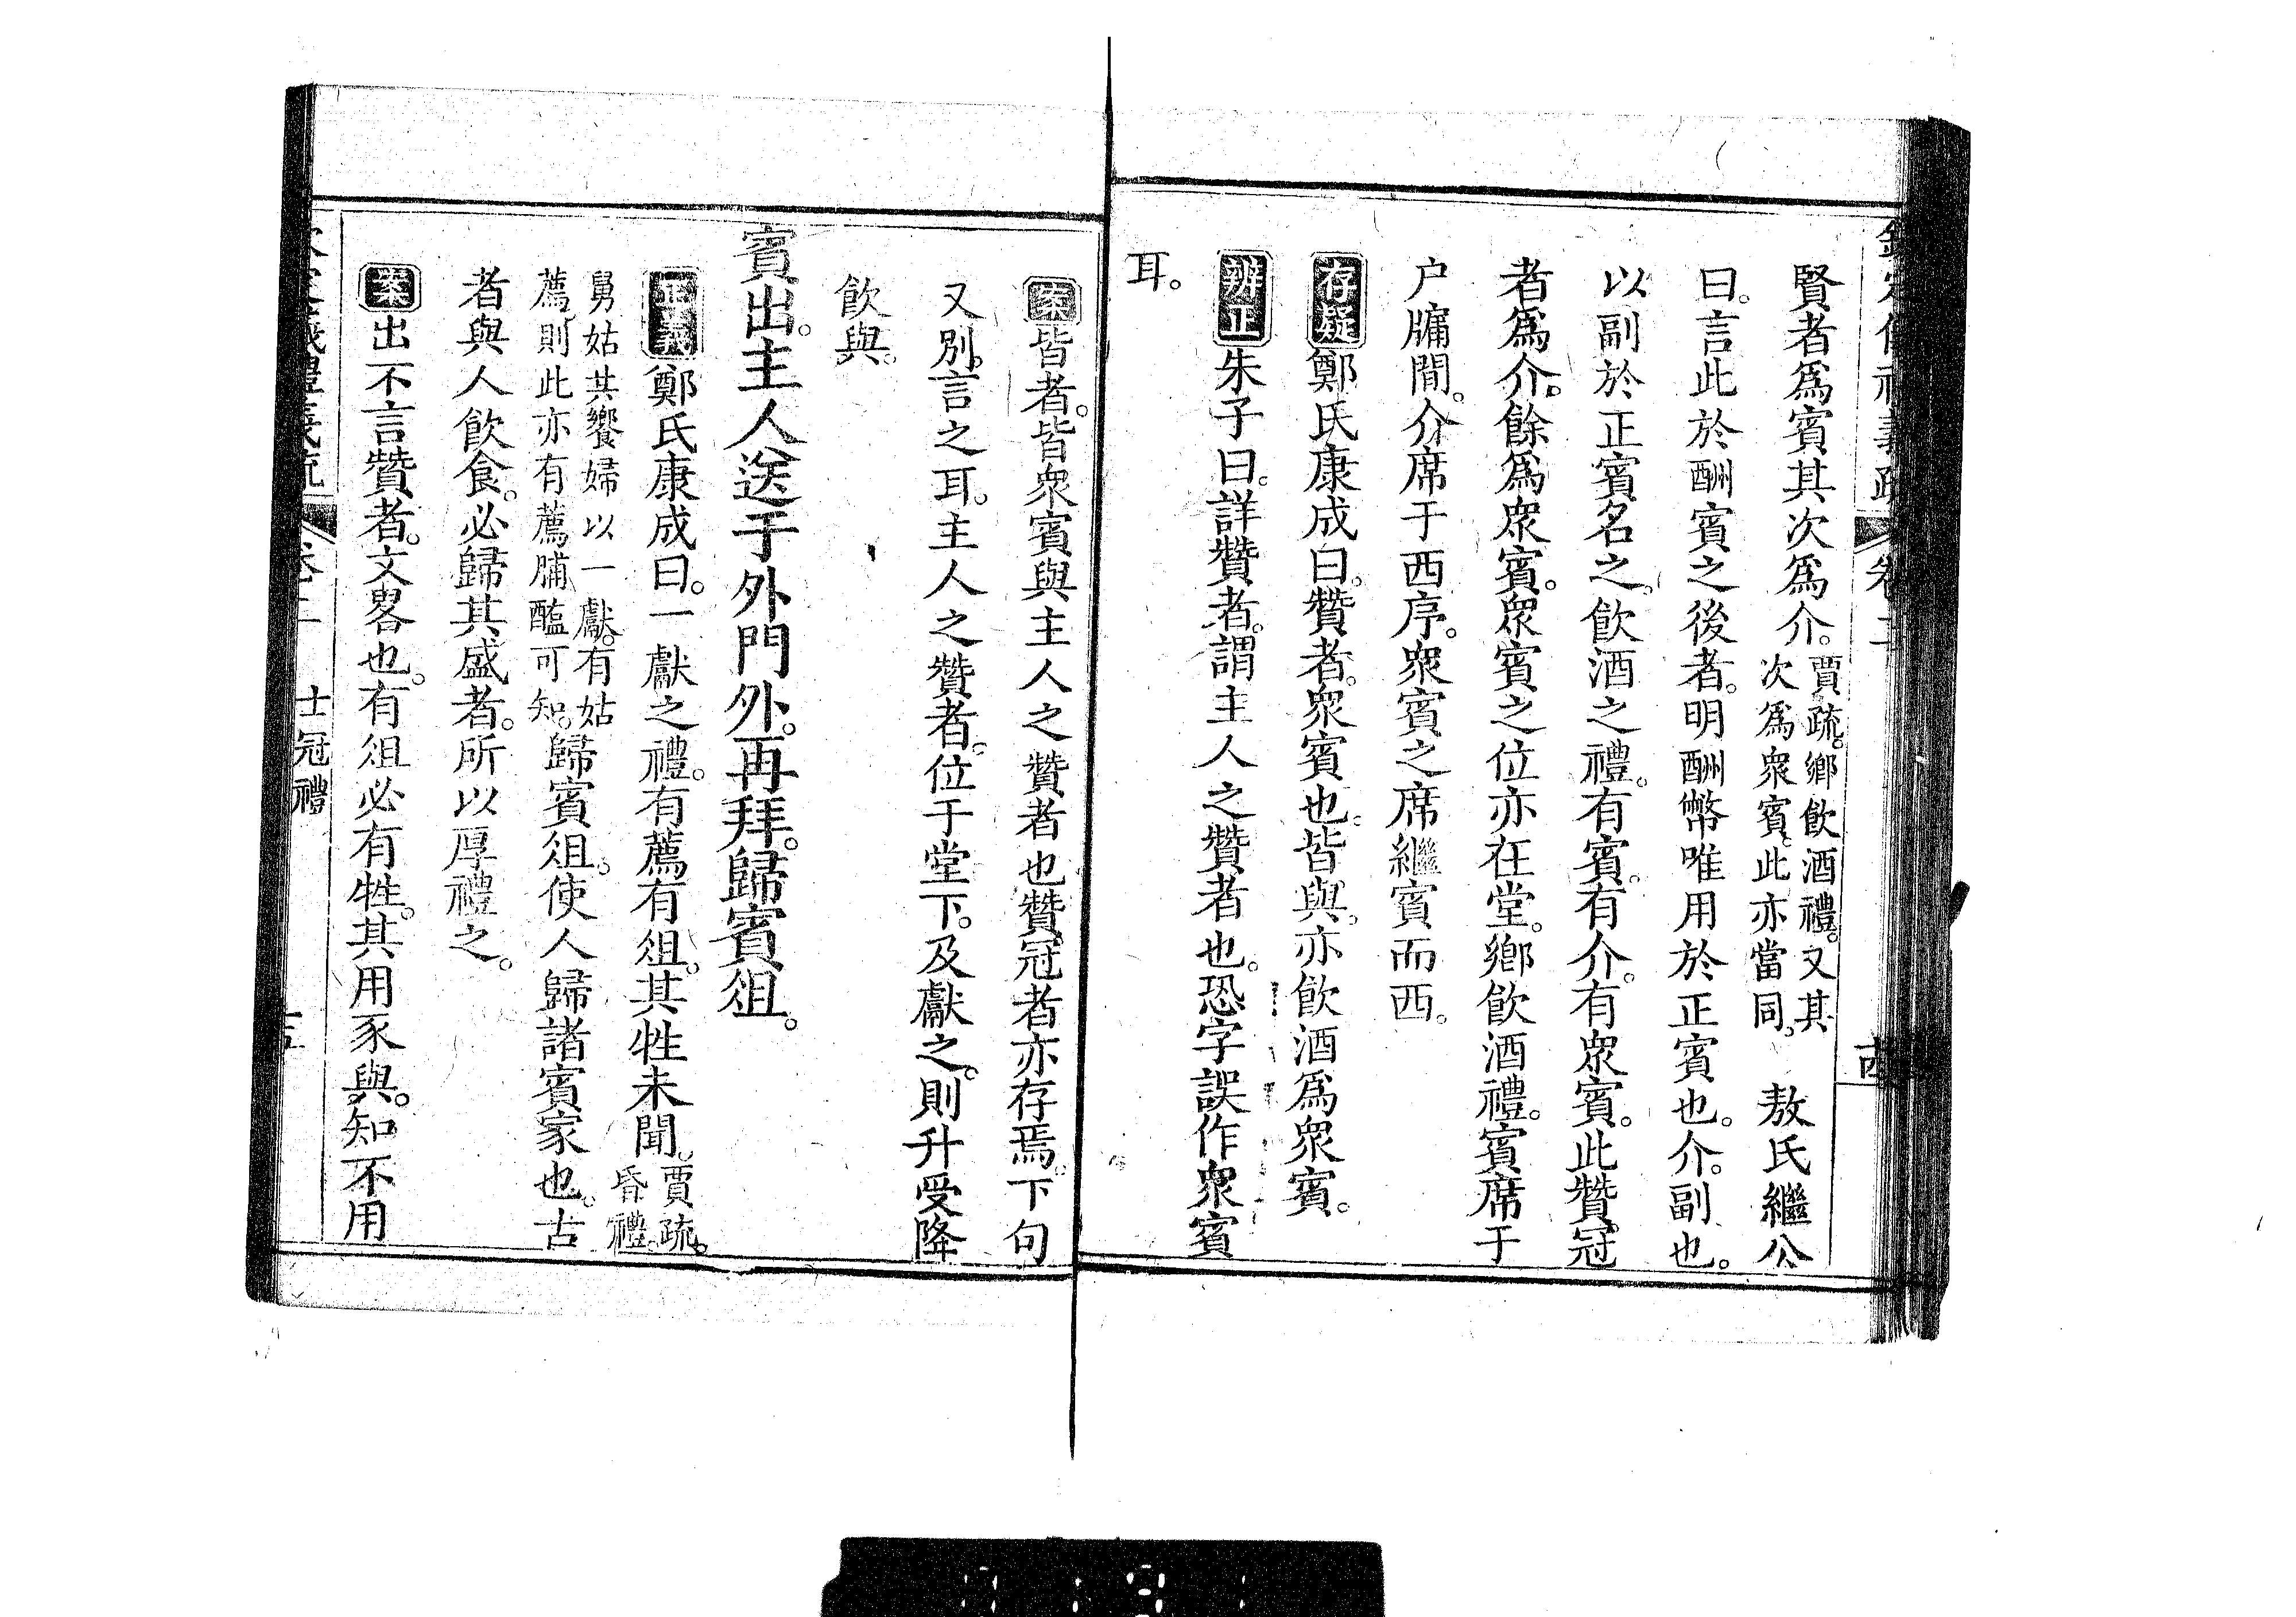 欽定儀禮義疏 卷二
賢者爲賓其次爲介。賈疏。鄉飲酒禮。又其次爲衆賓。此亦當同。 敖氏繼公
曰。言此於酬賓之後者。明酬幣唯用於正賓也。介。副也。
以副於正賓名之。飲酒之禮。有賓。有介。有衆賓。此贊冠
者爲介。餘爲衆賓。衆賓之位亦在堂。鄉飲酒禮。賓席于
户牖間。介席于西序。衆賓之席繼賓而西。
存疑鄭氏康成曰。贊者。衆賓也。皆與。亦飲酒爲衆賓。
辨正朱子曰。詳贊者。謂主人之贊者也。恐字誤作衆賓
耳。
案皆者。皆衆賓與主人之贊者也。贊冠者亦存焉。下句
又別言之耳。主人之贊者。位于堂下。及獻之。則升受降
飲與。
賓出。主人送于外門外。再拜。歸賓俎。
正義鄭氏康成曰。一獻之禮。有薦有俎。其牲未聞。賈疏。昏禮。
舅姑共饗婦以一獻。有姑薦。則此亦有薦脯醢可知。歸賓俎。使人歸諸賓家也。古
者與人飲食。必歸其盛者。所以厚禮之。
案出不言贊者。文畧也。有俎必有牲。其用豕與。知不用
欽定儀禮義疏 卷二 士冠禮